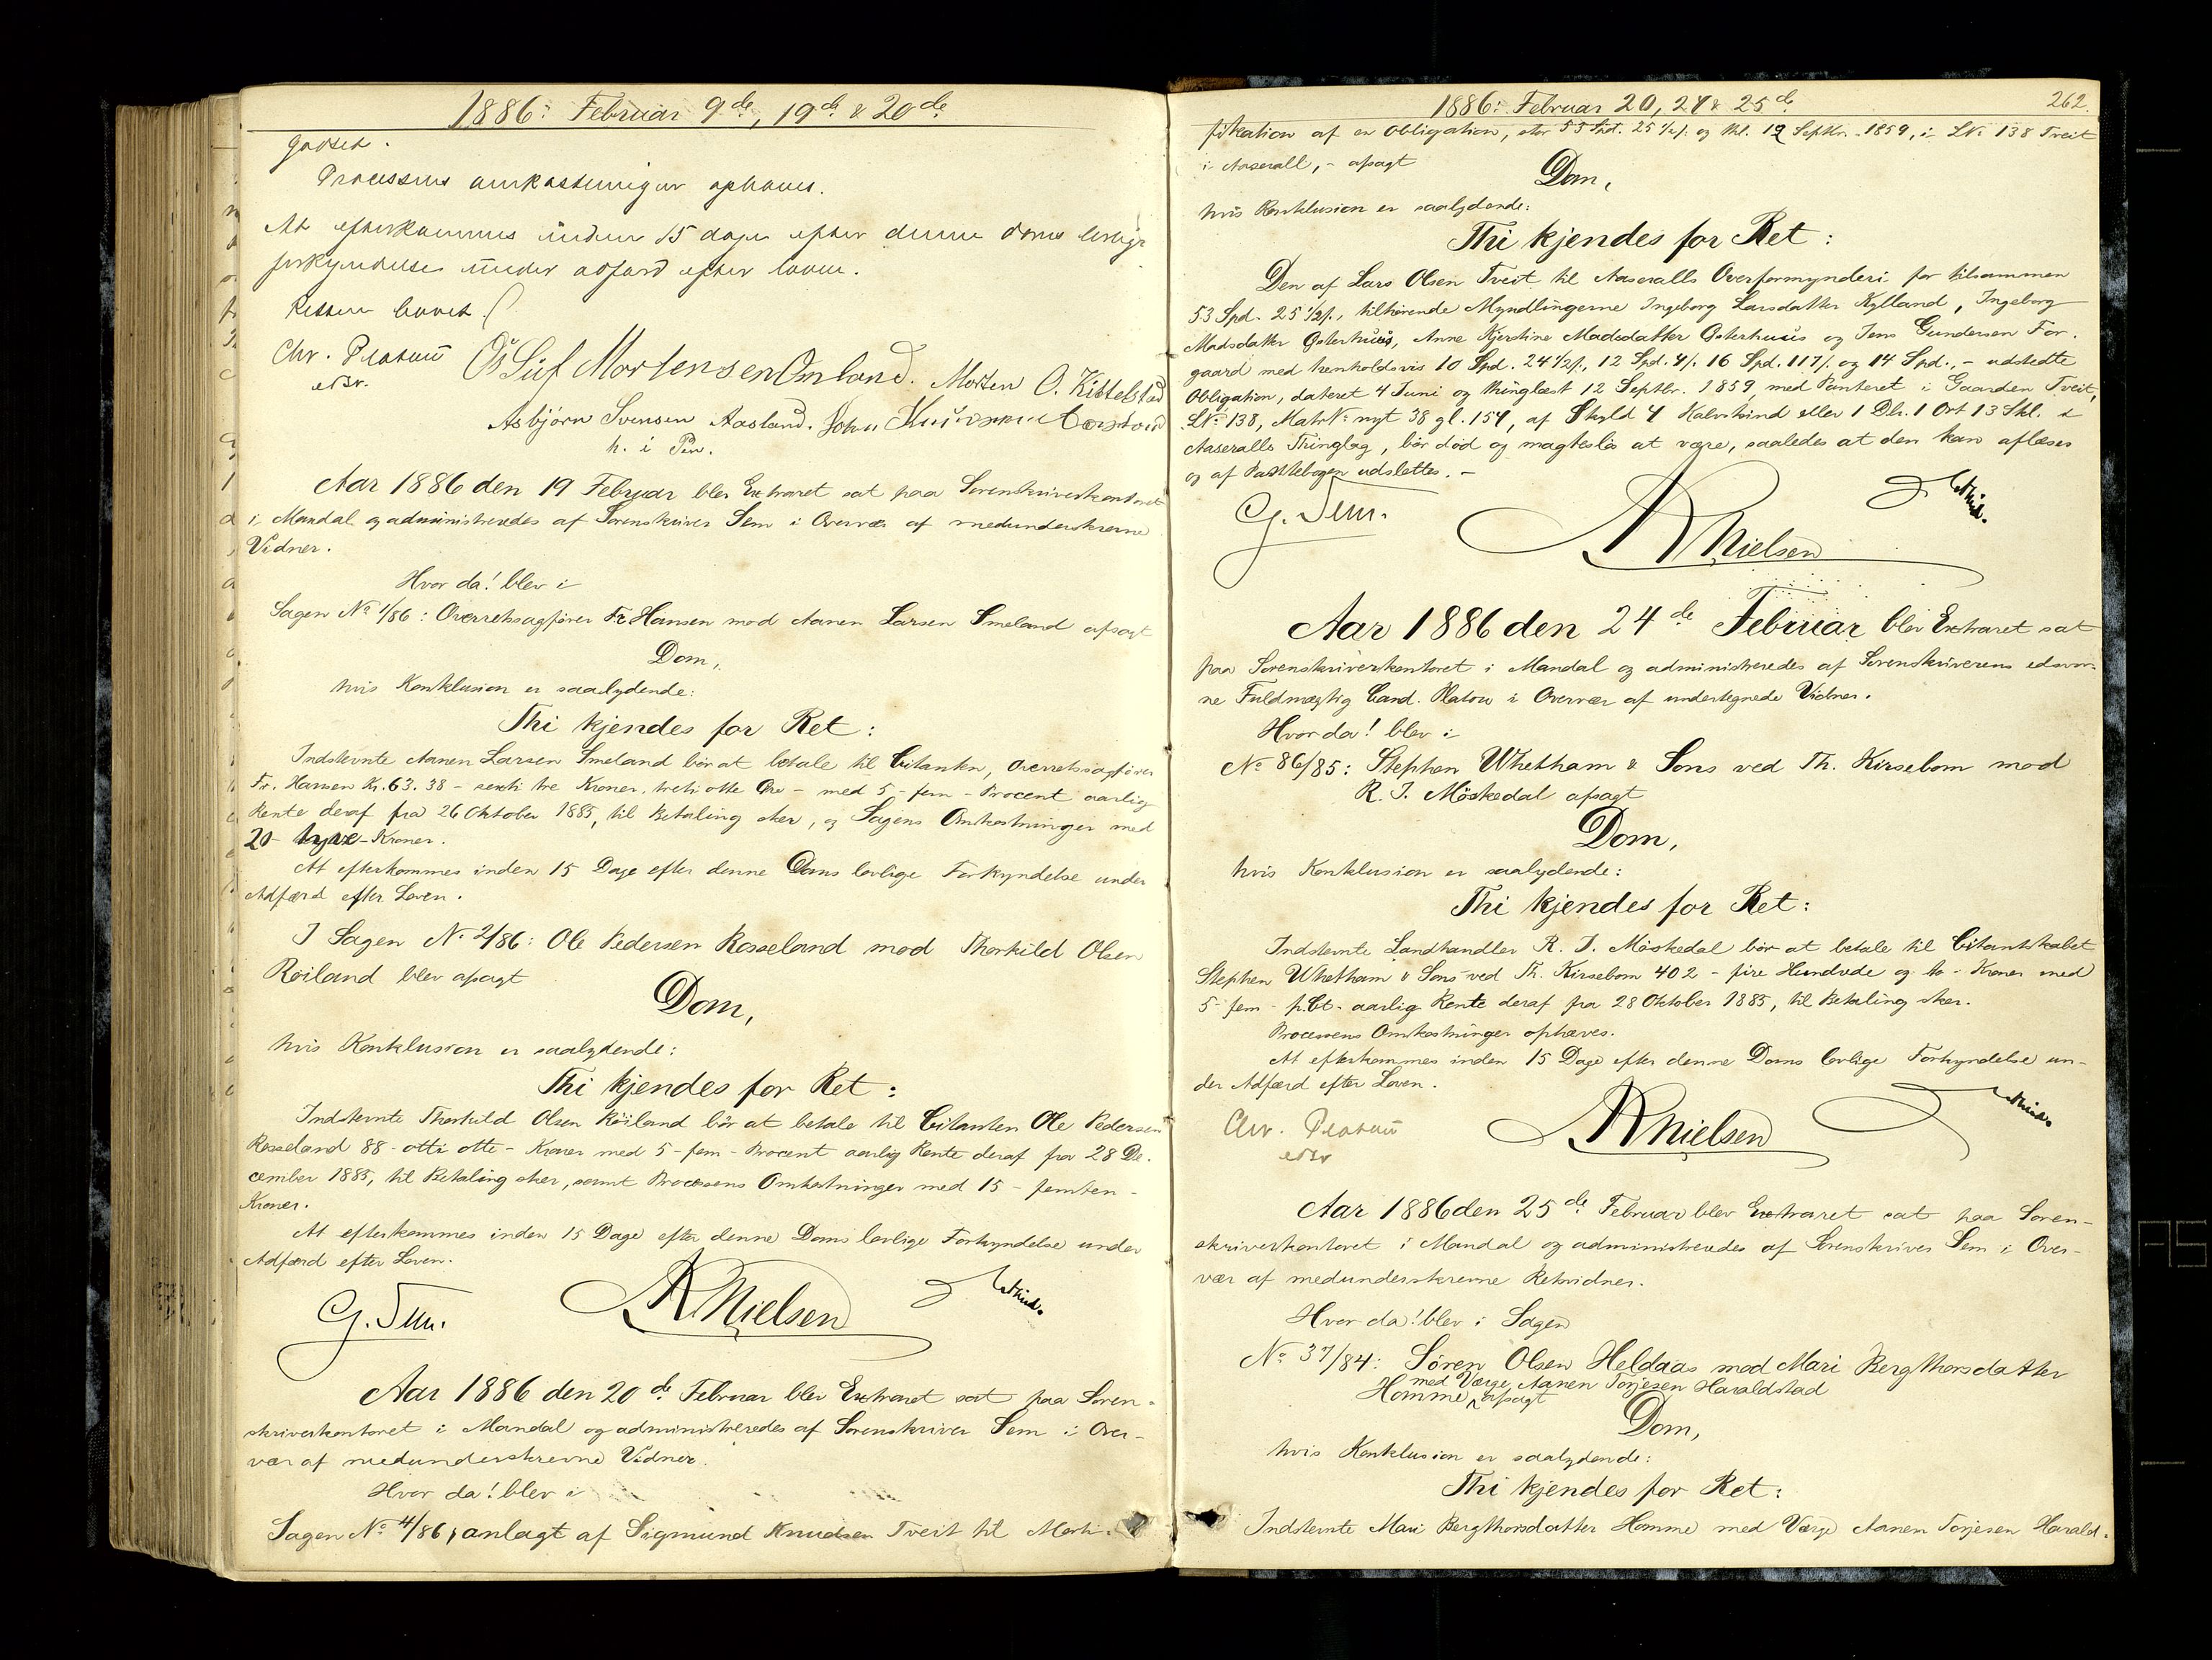 1886: Februar 9de, 19de & 20de
godset.
Processens omkostninger ophæves.
At efterkommes inden 15 dage efter denne doms lovlige
forkyndelse under adfærd efter loven.
Retten hævet.
Chr. Platou
edsv.
Mortensen Omland. Morten O. Kittelstad
Asbjørn Svensen Aasland. John
h. i Pen.
Aar 1886 den 19 Februar blev Extraret sat paa Sorenskriverkontoret
i Mandal og administreredes af Sorenskriver Sem i Overvær af medunderskrevne
Vidner.
Hvor da! blev i
Sagen No 1/86: Overretssagfører Fr. Hansen mod Aanen Larsen Smeland afsagt
Dom,
hvis Konklusion er saalydende:
Thi kjendes for Ret:
Indstevnte Aanen Larsen Smeland bör at betale til Citanten, Overretssagfører
Fr. Hansen Kr. 63.38 - sexti tre Kroner, treti otte Øre - med 5 - fem - Procent aarlig
Rente deraf fra 26 Oktober 1885, til Betaling sker, og Sagens Omkostninger med
20 - tyve - Kroner.
At efterkommes inden 15 Dage efter denne Doms lovlige Forkyndelse under
Adfærd efter Loven.
I Sagen No 2/86: Ole Pedersen Rosseland mod Thorkild Olsen
Röiland blev afsagt
Dom,
hvis Konklusion er saalydende:
Thi kjendes for Ret:
Indstevnte Thorkild Olsen Röiland bör at betale til Citanten Ole Pedersen
Rosseland 88 - otti otte - Kroner med 5 - fem - Procent aarlig Rente deraf fra 28 De-
cember 1885, til Betaling sker, samt Processens Omkostninger med 15 - femten -
Kroner.
At efterkommes inden 15 Dage efter denne Doms lovlige Forkyndelse under
Adfærd efter Loven.
G. Sem. A Nielsen
Aar 1886 den 20de Februar blev Extraret sat paa Soren-
skriverkontoret i Mandal og administreredes af Sorenskriver Sem i Over-
vær af medunderskrevne Vidner.
Hvor da! blev i
Sagen No 4/86, anlagt af Sigmund Knudsen Tveit til Morti-
1886: Februar 20, 24 & 25de
262.
fikation af en Obligation, stor 53 Spd. 25 1/2 s. og thl. 12 Septbr. 1859, i LNo 138 Tveit
i Aaserall, - afsagt
Dom,
hvis Konklusion er saalydende:
Thi kjendes for Ret:
Den af Lars Olsen Tveit til Aaseralls Overformynderi for tilsammen
53 Spd. 25 1/2 s., tilhørende Myndlingerne Ingeborg Larsdatter Kylland, Ingeborg
Madsdatter Østerhuus, Anne Kjerstine Madsdatter Østerhuus og Jens Gundersen For-
gaard med henholdsvis 10 Spd. 24 1/2 s., 12 Spd. 4 s. 16 Spd. 117 s. og 14 Spd., - udstedte
Obligation, dateret 4 Juni og thinglæst 12 Septbr. 1859, med Panteret i Gaarden Tveit,
LNo 138, Matr No nyt 38 gl. 154, af Skyld 4 Kalvskind eller 1 Dlr. 1 Ort 13 Skl. i
Aaseralls Thinglag, bör død og magteslös at være, saaledes at den kan aflæses
og af Pantebogen udslettes. -
G. Sem. A Nielsen
Aar 1886 den 24de Februar blev Extraret sat
paa Sorenskriverkontoret i Mandal og administreredes af Sorenskriverens edsvor-
ne Fuldmægtig Cand. Platou i Overvær af undertegnede Vidner.
Hvor da! blev i
No 86/85: Stephen Whetham & Sons ved Th. Kirsebom mod
R. J. Möskedal afsagt
Dom,
hvis Konklusion er saalydende:
Thi kjendes for Ret:
Indstevnte Landhandler R. J. Möskedal bör at betale til Citantskabet
Stephen Whetham & Sons ved Th. Kirsebom 402 - fire Hundrede og to - Kroner med
5 - fem - p.Ct. aarlig Rente deraf fra 28 Oktober 1885, til Betaling sker.
Processens Omkostninger ophæves.
At efterkommes inden 15 Dage efter denne Doms lovlige Forkyndelse un-
der Adfærd efter Loven.
Chr. Platou A Nielsen
edsv
Aar 1886 den 25de Februar blev Extraret sat paa Soren-
skriverkontoret i Mandal og administreredes af Sorenskriver Sem i Over-
vær af medunderskrevne Retsvidner.
Hvor da! blev i Sagen
No 37/84: Sören Olsen Heldaas mod Mari Bergthorsdatter
med Værge Aanen Torjesen Haraldstad
Homme afsagt
Dom,
hvis Konklusion er saalydende:
Thi kjendes for Ret:
Indstevnte Mari Bergthorsdatter Homme med Værge Aanen Torjesen Harald-